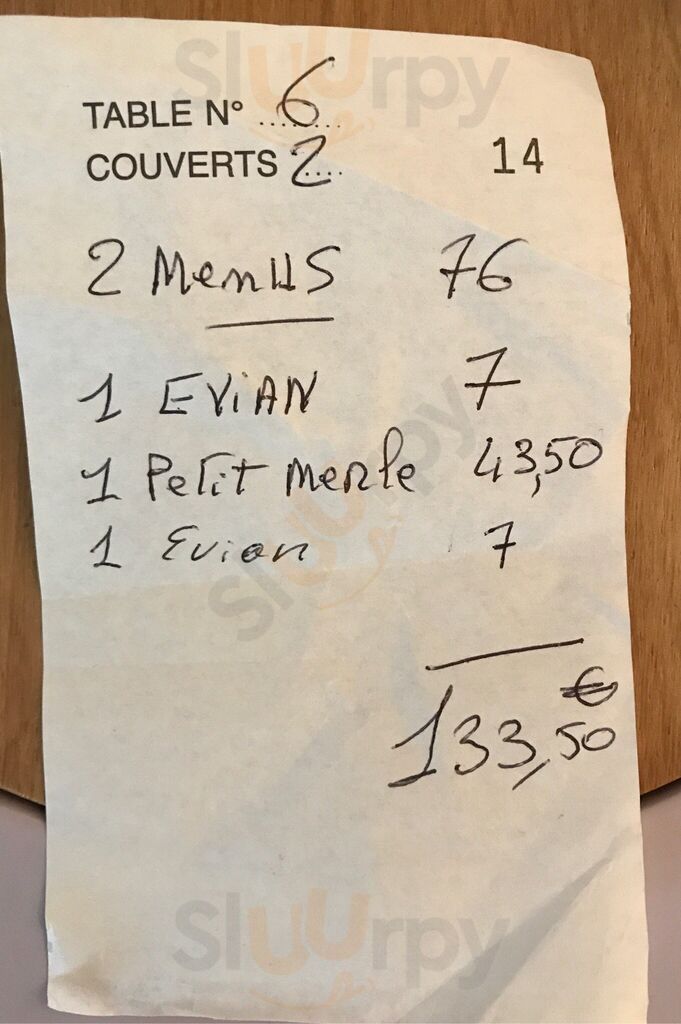 Sluurpy
TABLE N° ...6...
COUVERTS 2.... 14
2 MenUS 76
1 EViAN 7
1 Petit merle 43,50
1 Evian 7
Sluurpy
€
133,50
Sluurpy